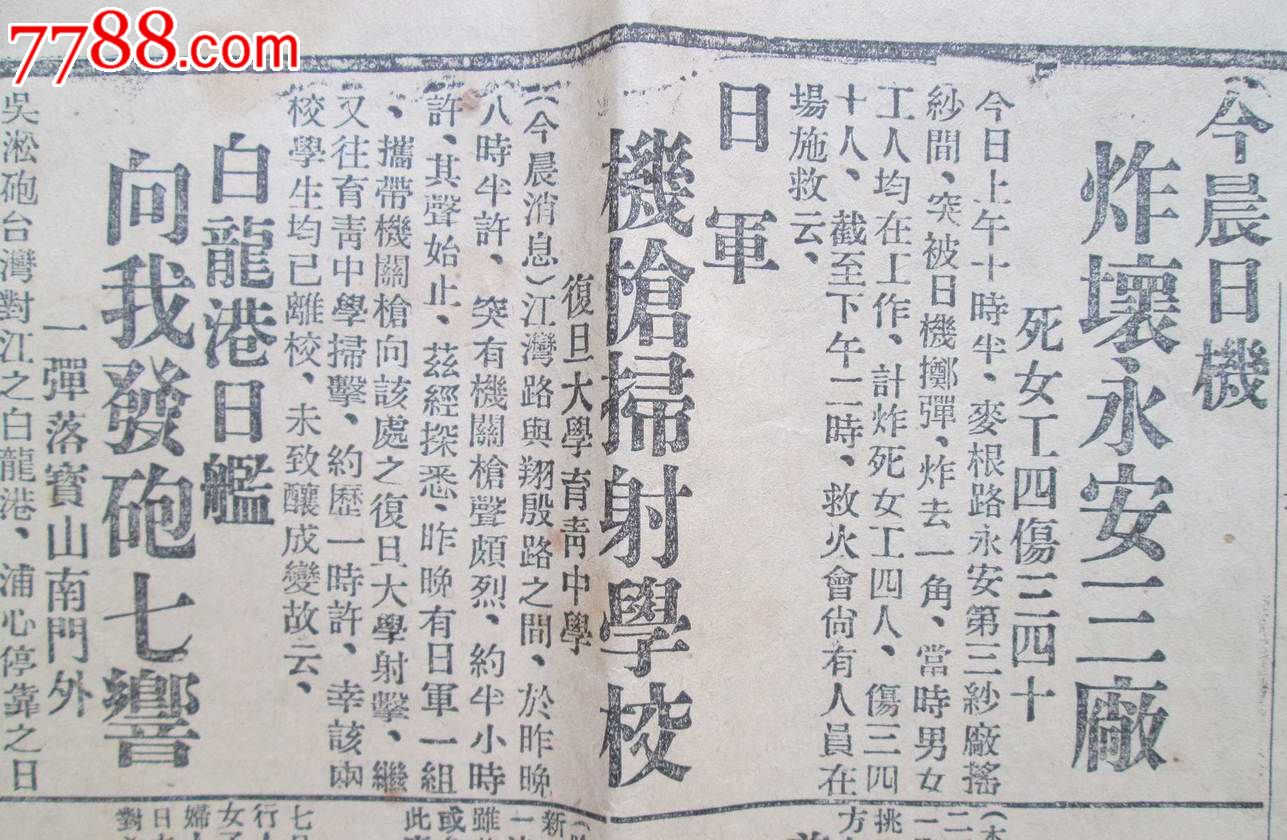 7788.com
今晨日機
炸壞永安三廠
死女工四傷三四十
今日上午十時半、麥根路永安第三紗廠搖
紗間、突被日機擲彈、炸去一角、當時男女
工人均在工作、計炸死女工四人、傷三四
十人、截至下午二時、救火會尙有人員在
場施救云、
日軍
機槍掃射學校
復旦大學育靑中學
(今晨消息)江灣路與翔殷路之間、於昨晚
八時半許、突有機關槍聲頗烈、約半小時
許、其聲始止、茲經探悉、昨晚有日軍一組
、攜帶機關槍向該處之復旦大學射擊、繼
又往育靑中學掃擊、約歷一時許、幸該兩
校學生均已離校、未致釀成變故云、
白龍港日艦
向我發砲七響
一彈落寶山南門外
吳淞砲台灣對江之白龍港、浦心停靠之日